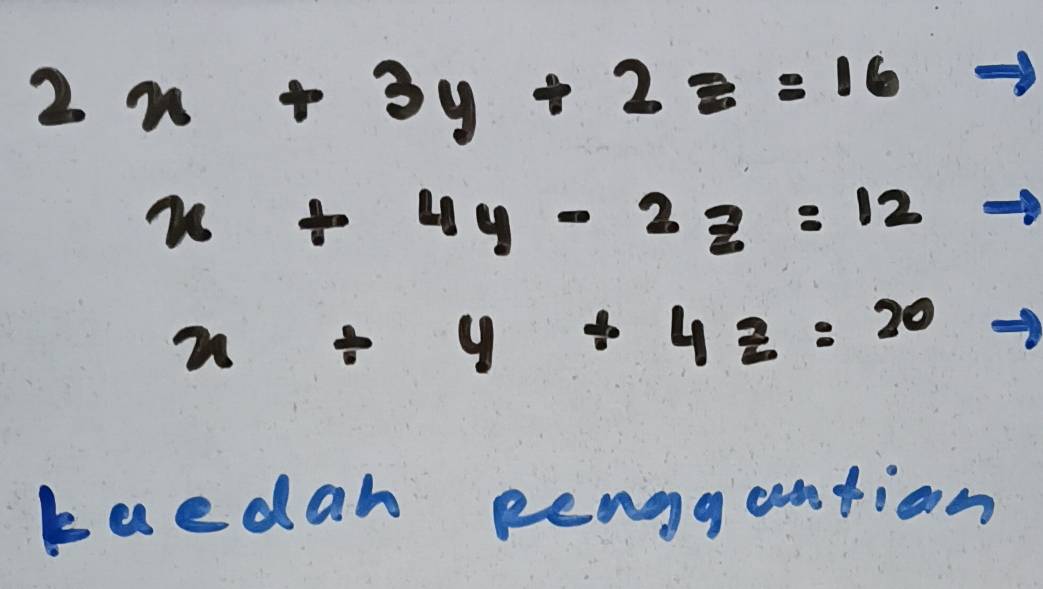 2x + 3y + 2z = 16 →
x + 4y - 2z = 12 →
x + y + 4z = 20 →
kaedah penggantian